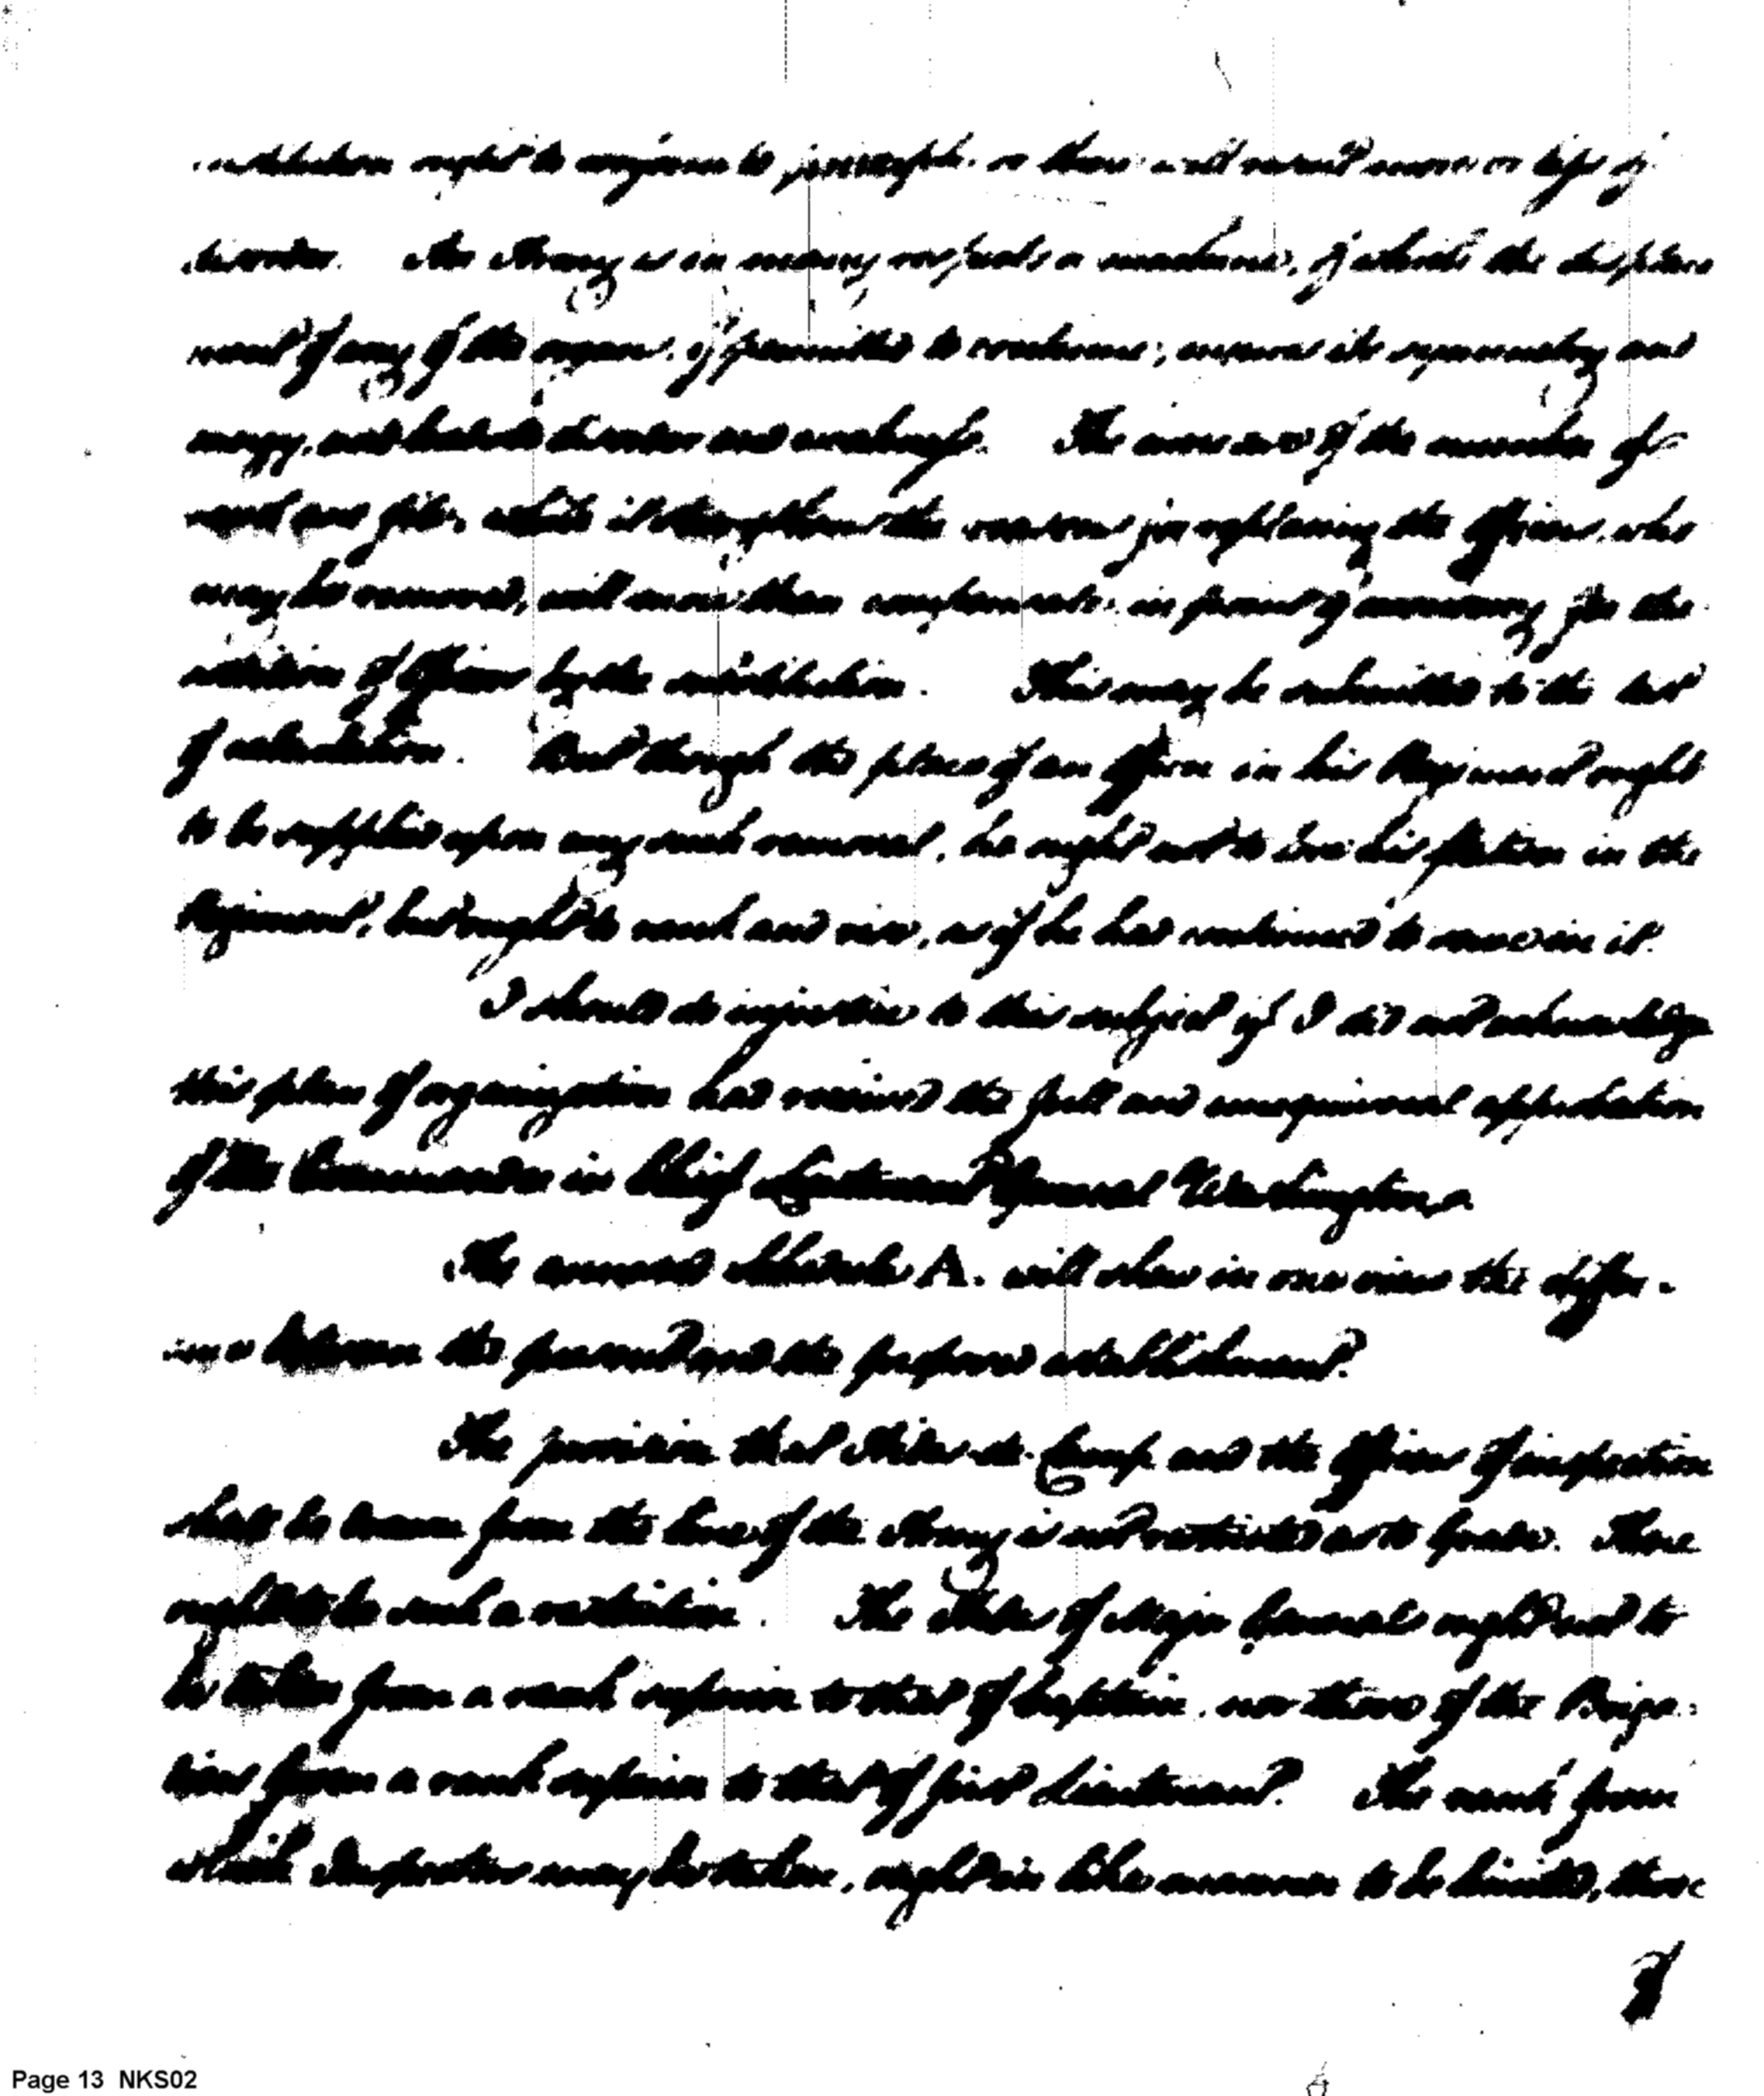 institution ought to regimen to principle. or there will result more or less of
disorder. An Army is in many respects a machine, of which the displace
ment of any of the organs, if permitted to continue, injures its symmetry and
energy, and leads to disorder and weakness. The increase of the number of
rank and file, while it strengthens the reasons for replacing the officers, who
may be removed, will more than compensate, in point of economy, for the
addition of officers by the institution. This may be submitted to the test
of calculation. But though the place of an officer in his Regiment ought
to be supplied upon any such removal, he ought not to lose his station in the
Regiment, but ought to rank and rise, as if he had continued to serve in it.
I should do injustice to this subject if I did not acknowledge
this plan of organization has received the full and unequivocal approbation
of the Commander in Chief Lieutenant General Washington
The annexed Schedule A. will shew in one view the differ-
ence between the present and the proposed establishment.
The provision that Aides-de-Camp and the officers of inspection
shall be drawn from the line of the Army is not restricted as to grade. There
ought to be such a restriction. The Aides of Major Generals ought not to
be taken from a rank superior to that of Captain, nor those of the Briga-
diers from a rank superior to that of first Lieutenant. The rank from
which Inspectors may be taken, ought in like manner to be limited, those
Page 13 NKS02